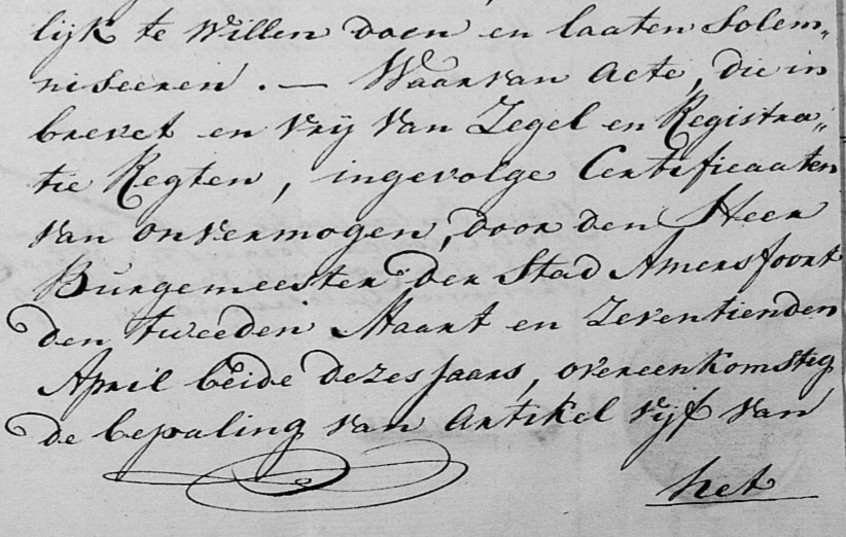 lijk te willen doen en laaten Solem„
niseeren. — Waarvan Acte, die in
brevet en vrij van Zegel en Registra„
tie Regten, ingevolge Certificaaten
van onvermogen, door den Heer
Burgemeester der Stad Amersfoort
den tweeden Maart en Zeventienden
April beide dezes Jaars, overeenkomstig
de bepaling van Artikel vijf van
het